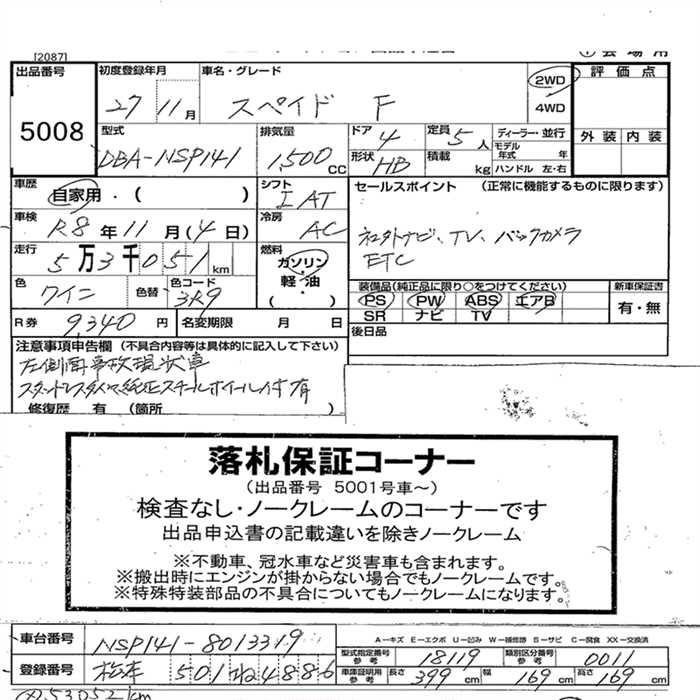 [2087]
出品番号 初度登録年月 車名・グレード 2WD 評価点
5008 27 11月 スペイド F 4WD
型式 排気量 ドア 4 定員 5人 ディーラー・並行 外装 内装
DBA-NSP141 1,500CC 形状 HB 積載 kg モデル年式 年 ハンドル 左・右
車歴 自家用・( ) シフト IAT セールスポイント (正常に機能するものに限ります)
車検 R8年11月(4日) 冷房 AC
ナビ、TV、バックカメラ
走行 5万3千051km 燃料 ガソリン・軽・油・( )
ETC
色 ワイン 色替 色コード 3R9 装備品(純正品に限り○をつけてください) 新車保証書
PS PW ABS エアB 有・無
SR ナビ TV
R券 9,340円 名変期限 月 日 後日品
注意事項申告欄 (不具合内容等は具体的に記入して下さい)
左側面事故現状車
スタットレスタイヤ純正スチールホイール付有
修復歴 有 (箇所 )
落札保証コーナー
(出品番号 5001号車~)
検査なし・ノークレームのコーナーです
出品申込書の記載違いを除きノークレーム
※不動車、冠水車など災害車も含まれます。
※搬出時にエンジンが掛からない場合でもノークレームです。
※特殊特装部品の不具合についてもノークレームになります。
車台番号 NSP141-8013319 A-キズ E-エクボ U-凹み W-補修跡 S-サビ C-腐食 XX-交換済
型式指定番号 参考 18119 類別区分番号 参考 0011
登録番号 松本 501 車庫証明用 参考 長さ 399cm 幅 169cm 高さ 169cm
53052km